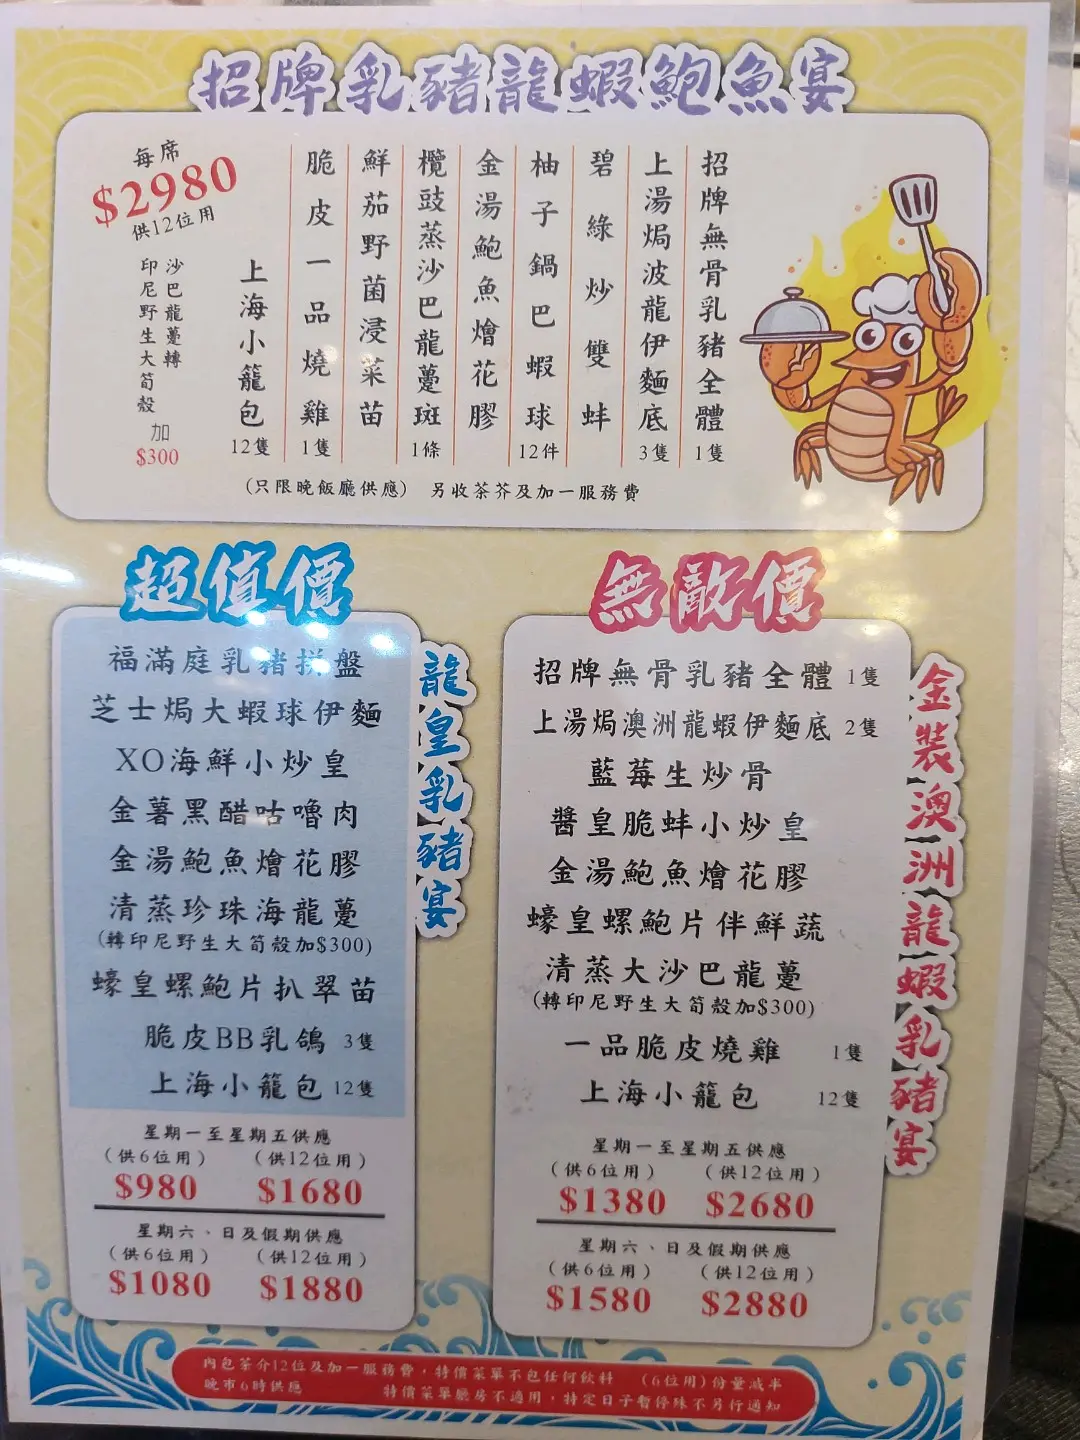 招牌乳豬龍蝦鮑魚宴
每席
$2980
供12位用
招牌無骨乳豬全體 1隻
上湯焗波龍伊麵底 3隻
碧綠炒雙蚌
柚子鍋巴蝦球 12件
金湯鮑魚燴花膠
欖豉蒸沙巴龍躉斑 1條
鮮茄野菌浸菜苗
脆皮一品燒雞 1隻
上海小籠包 12隻
沙巴龍躉轉
印尼野生大筍殼
加
$300
(只限晚飯廳供應) 另收茶芥及加一服務費
超值價
龍皇乳豬宴
福滿庭乳豬拼盤
芝士焗大蝦球伊麵
XO海鮮小炒皇
金薯黑醋咕嚕肉
金湯鮑魚燴花膠
清蒸珍珠海龍躉
(轉印尼野生大筍殼加$300)
蠔皇螺鮑片扒翠苗
脆皮BB乳鴿 3隻
上海小籠包 12隻
星期一至星期五供應
(供6位用) (供12位用)
$980 $1680
星期六、日及假期供應
(供6位用) (供12位用)
$1080 $1880
無敵價
金裝澳洲龍蝦乳豬宴
招牌無骨乳豬全體 1隻
上湯焗澳洲龍蝦伊麵底 2隻
藍莓生炒骨
醬皇脆蚌小炒皇
金湯鮑魚燴花膠
蠔皇螺鮑片伴鮮蔬
清蒸大沙巴龍躉
(轉印尼野生大筍殼加$300)
一品脆皮燒雞 1隻
上海小籠包 12隻
星期一至星期五供應
(供6位用) (供12位用)
$1380 $2680
星期六、日及假期供應
(供6位用) (供12位用)
$1580 $2880
內包茶介12位及加一服務費，特價菜單不包任何飲料 (6位用)份量減半
晚市6時供應 特價菜單廳房不適用，特定日子暫停殊不另行通知